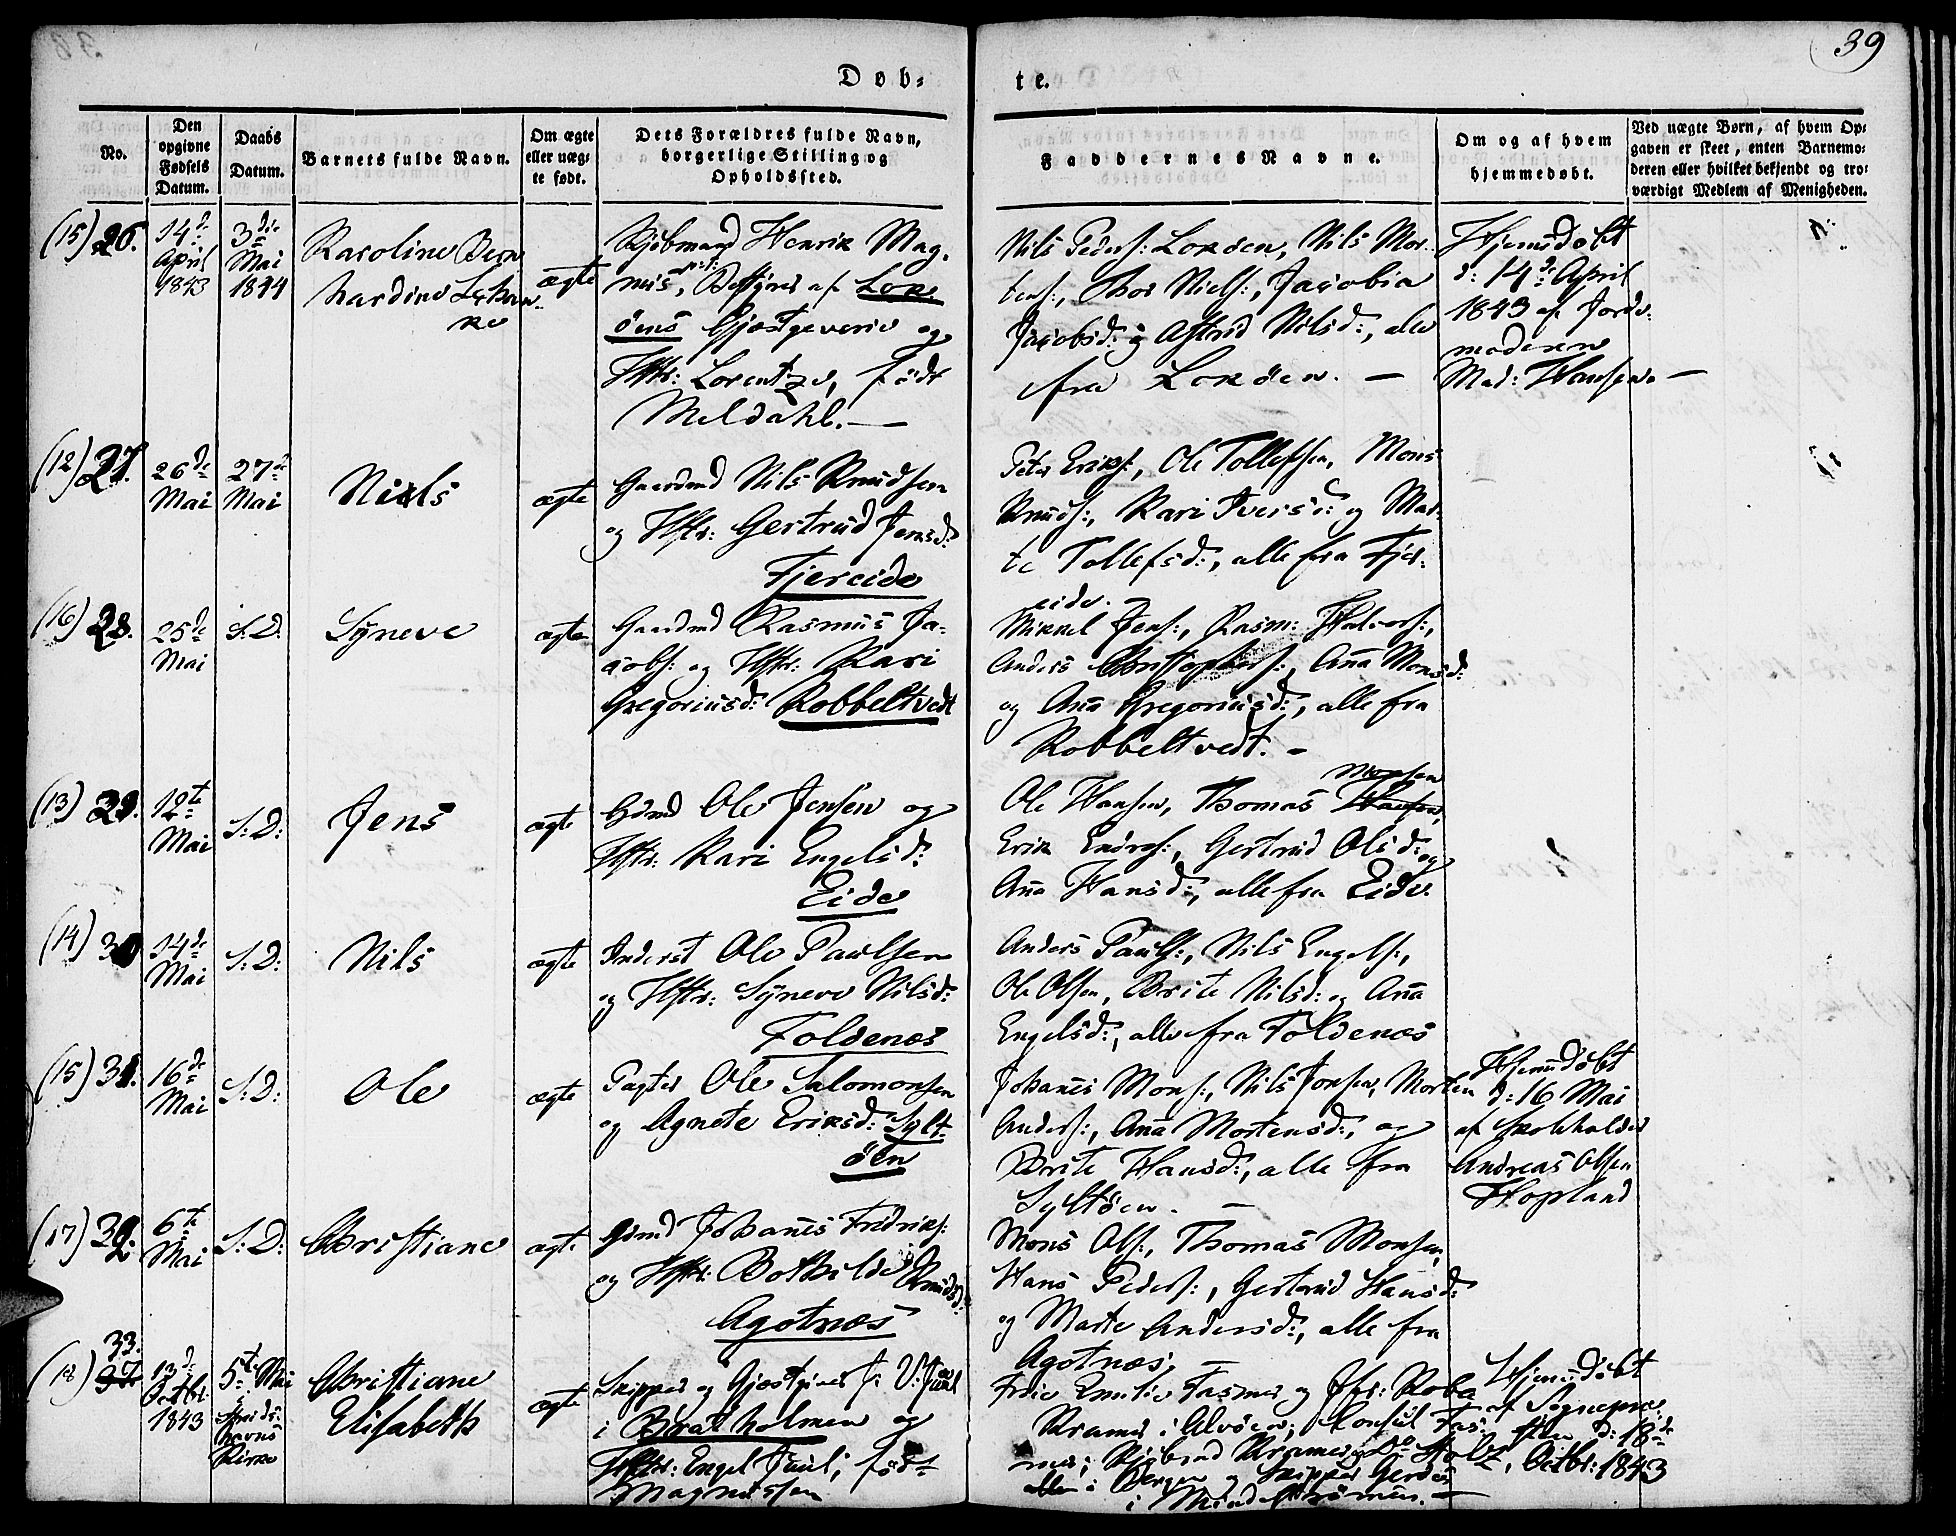 39
Døb-
te.
No.
Den opgivne Fødsels Datum.
Daabs Datum.
Barnets fulde Navn.
Om ægte eller uæg-
te født.
Dets Forældres fulde Navn,
borgerlige Stilling og
Opholdssted.
Faddernes Navne.
Om og af hvem
hjemmedøbt.
Ved uægte Børn, af hvem Op-
gaven er skeet, enten Barnemo-
deren eller hvilket bekjendt og tro-
værdigt Medlem af Menigheden.
(15) 26.
14de
April
1843
3die
Mai
1844
Karoline Bern
hardine Lehm
ke
ægte
Kjøbmand Henrik Mag-
nus, af Lok-
öens Gjæstgeverie og
Hstr: Lorentze, født
Meldahl. —
Nils Peders: Loköen, Nils Mor-
tens:, Thor Niels:, Jacobia
Jacobsd: og Astrid Nilsd:, alle
fra Loköen. —
Hjemdøbt
d: 14de April
1843 af Jorde-
moderen
Mad: Hansen. —
(12) 27.
26de
Mai
27de
Mai
Niels
ægte
Gaardmd Nils Knudsen
og Hstr: Gertrud Jensd:
Fjereide
Peter Eriks:, Ole Tollefsen, Mons
Knuds:, Kari Iversd: og Mar-
te Tollefsd:, alle fra Fjer-
eide. —
(16) 28.
25de
Mai
S:D:
Syneve
ægte
Gaardmd Rasmus Ja-
cobs: og Hstr: Kari
Gregoriusd: Kobbeltvedt
Mikkel Jens:, Rasm: Halvors:,
Anders Christophers:, Aña Monsd:
og Aña Gregoriusd:, alle fra
Kobbeltvedt. —
(13) 29.
12te
Mai
S:D:
Jens
ægte
Gdmd Ole Jensen og
Hstr: Kari Engelsd:
Eide
Monsen
Ole Hansen, Thomas Hansen,
Erik Endres:, Gertrud Olsd: og
Aña Hansd:, alle fra Eide.
(14) 30
14de
Mai
S:D:
Nils
ægte
Inderst Ole Paulsen
og Hstr: Syneve Nilsd:
Foldenæs
Anders Pauls:, Nils Engels:,
Ole Olsen, Brite Nilsd: og Aña
Engelsd:, alle fra Foldenæs
(15) 31.
16de
Mai
S:D:
Ole
ægte
Pagter Ole Salomonsen
og Agnete Eriksd: Sylt-
öen
Johañes Mons:, Nils Jonsen, Morten
Anders:, Aña Mortensd:, og
Brite Hansd:, alle fra
Syltöen. —
Hjemdøbt
d: 16 Mai
af Skoleholder
Andreas Olsen
Hopland
(17) 32.
6te
Mai
S:D:
Christiane
ægte
Gdmd Johañes Fredriks:
og Hstr: Bothilde Knudsd:
Agotnæs
Mons Ols:, Thomas Monsen,
Hans Peders:, Gertrud Hansd:
og Marte Andersd:, alle fra
Agotnæs. —
33.
(18) 37.
13de
Octbr:
1843
5te Mai
i
Kirke
Christiane
Elisabeth
ægte
Skipper og Gjæstgiver J: V: Juul
i Bratholmen og
Hstr: Engel Juul, født
Magnussen
Frue Emilie Fasmer og Jfr: 
Kramer i Alvøen; Consul Fas-
mer; Kjøbmd Kramer og 
alle i Bergen og Skipper 
i
Hjemdøbt
af Sognepræ-
sten d: 18de
Octbr: 1843